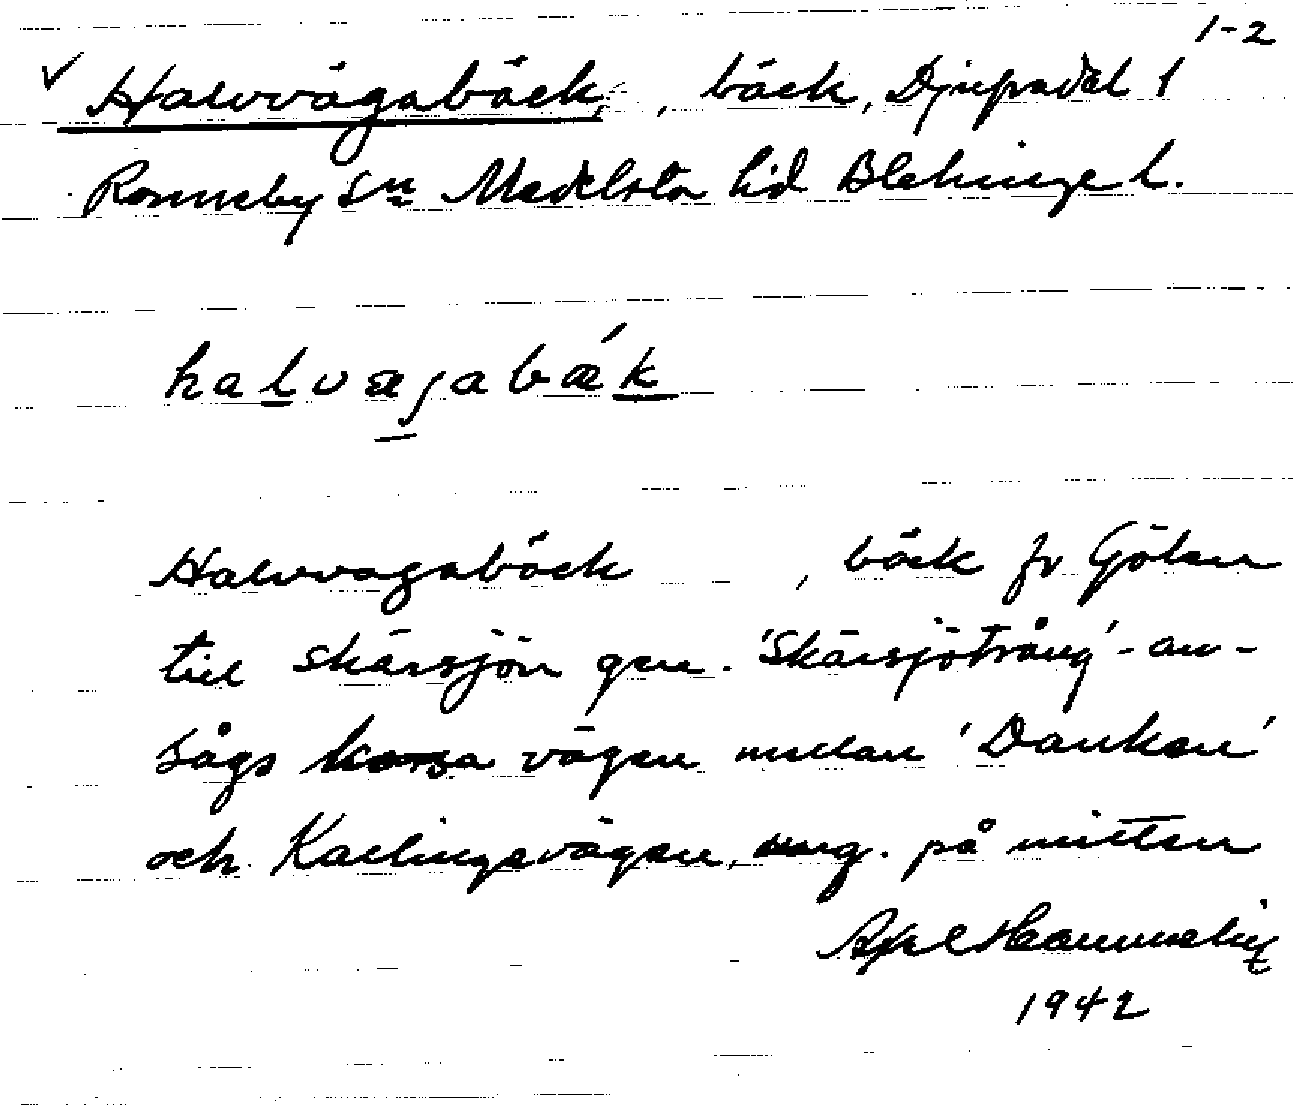 1-2
✓ Halvvägabäck, , bäck, Djupadal 1
Ronneby sn Medelsta hd Blekinge l.
halvæjabǽk
Halvvägabäck , bäck fr Gölen
till Skärsjön gm. 'Skärsjötrång' - an-
sågs korsa vägen mellan 'Danken'
och Kallingevägen, ung. på mitten
Axel Hammelin
1942